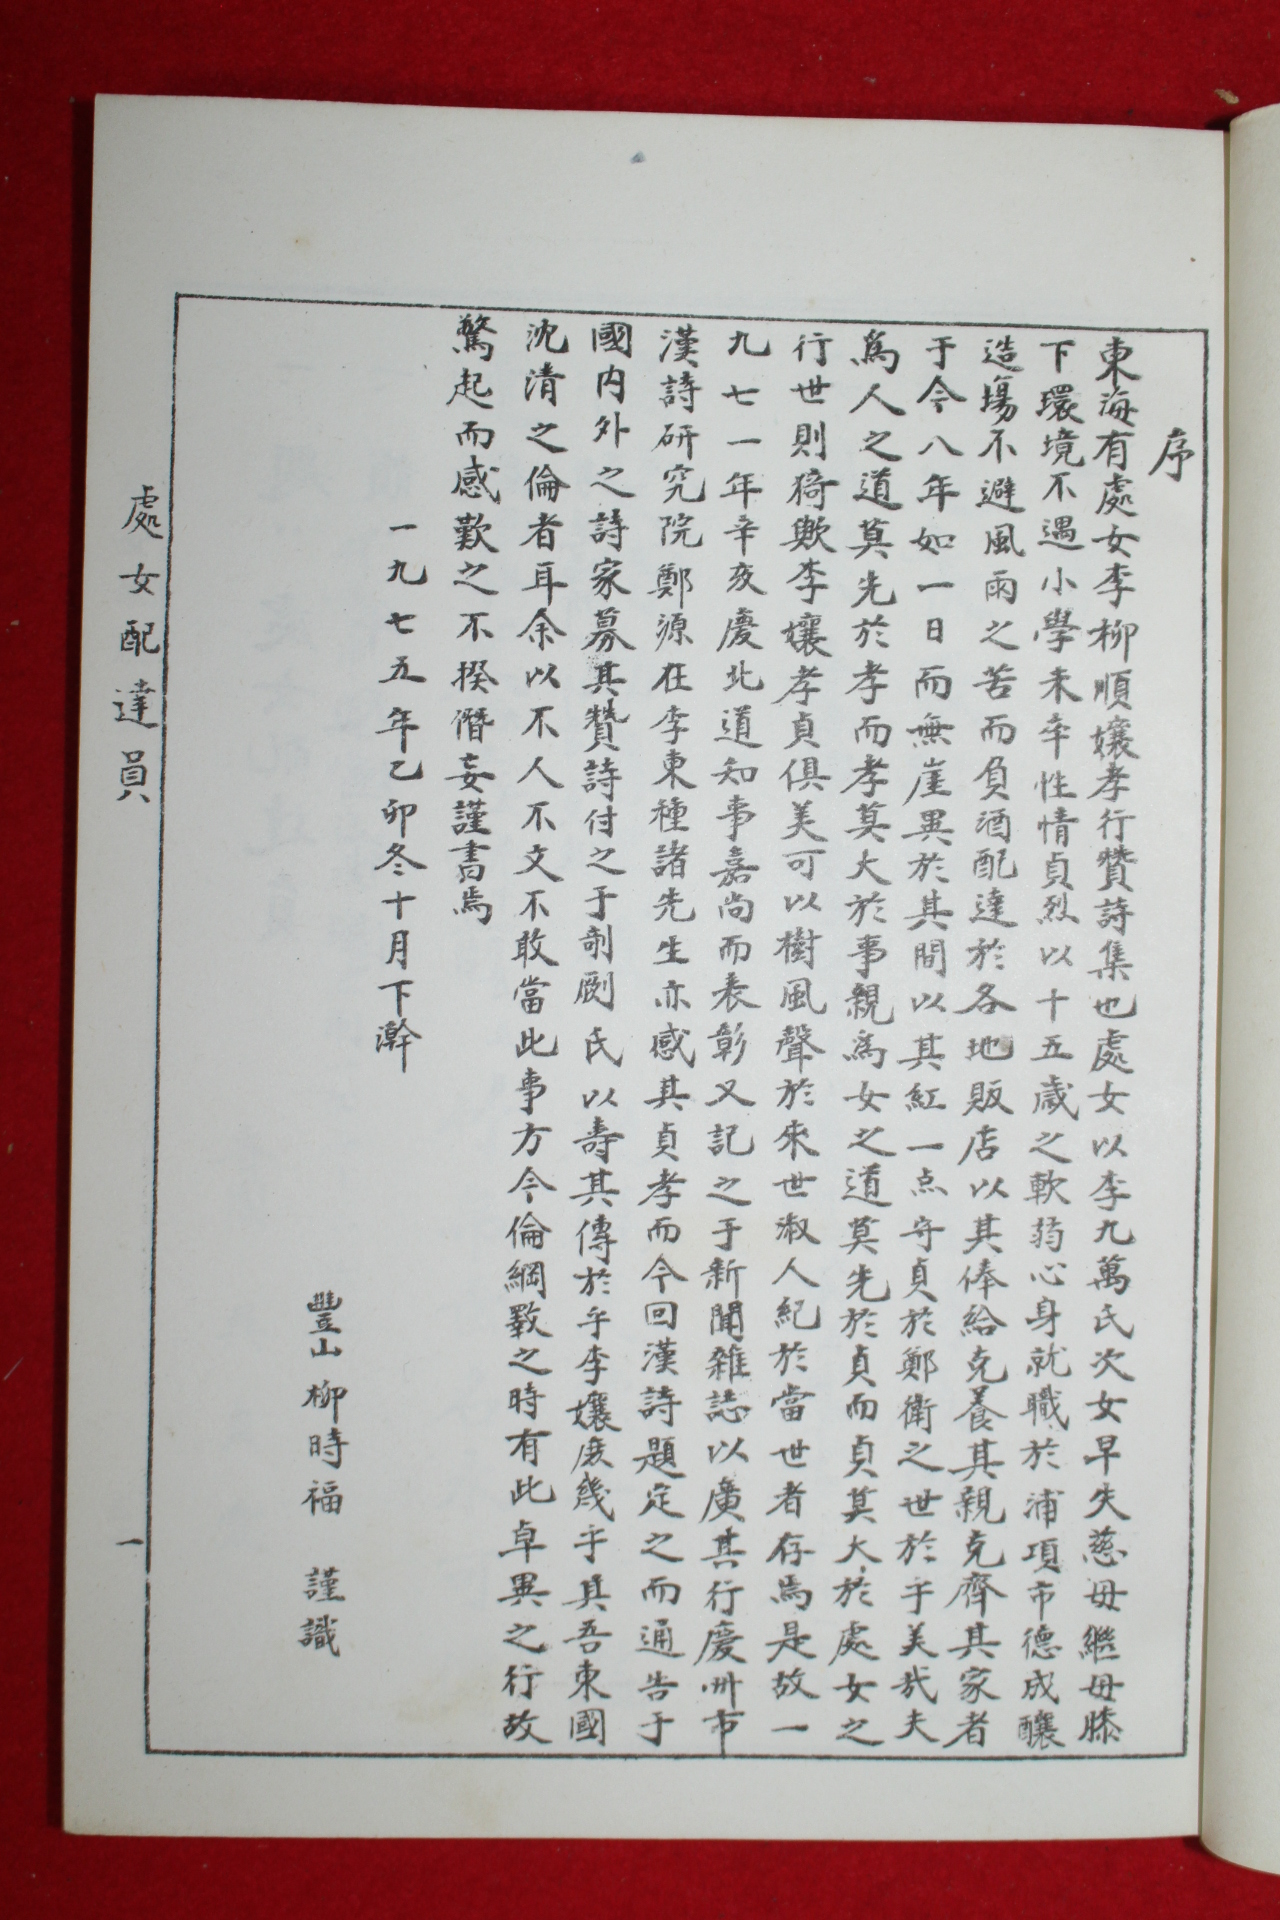 序
東海有處女李柳順孃孝行贊詩集也處女以李九萬氏次女早失慈母繼母膝
下環境不遇小學未卒性情貞烈以十五歲之軟弱心身就職於浦項市德成釀
造場不避風雨之苦而負酒配達於各地販店以其俸給克養其親克齊其家者
于今八年如一日而無崖異於其間以其紅一点守貞於鄭衛之世於乎美哉夫
爲人之道莫先於孝而孝莫大於事親爲女之道莫先於貞而貞莫大於處女之
行世則猗歟李孃孝貞俱美可以樹風聲於來世淑人紀於當世者存焉是故一
九七一年辛亥慶北道知事嘉尚而表彰又記之于新聞雜誌以廣其行慶州市
漢詩硏究院鄭源在李東種諸先生亦感其貞孝而今回漢詩題定之而通告于
國内外之詩家募其贊詩付之于剞劂氏以壽其傳於乎李孃庶幾乎眞吾東國
沈清之倫者耳余以不人不文不敢當此事方今倫綱斁之時有此卓異之行故
驚起而感歎之不揆僭妄謹書焉
一九七五年乙卯冬十月下澣
豐山柳時福 謹識
處女配達員
一